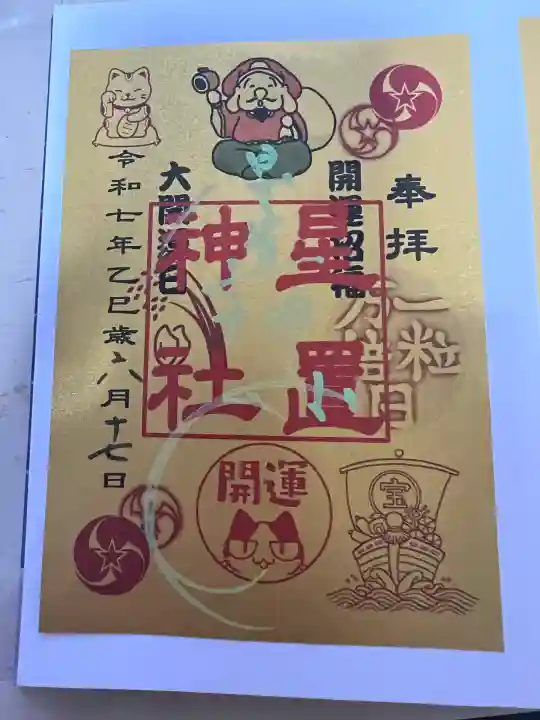 奉拝
開運招福
一粒
万倍日
星置
神社
大開運日
令和七年乙巳歳八月十七日
開運
宝